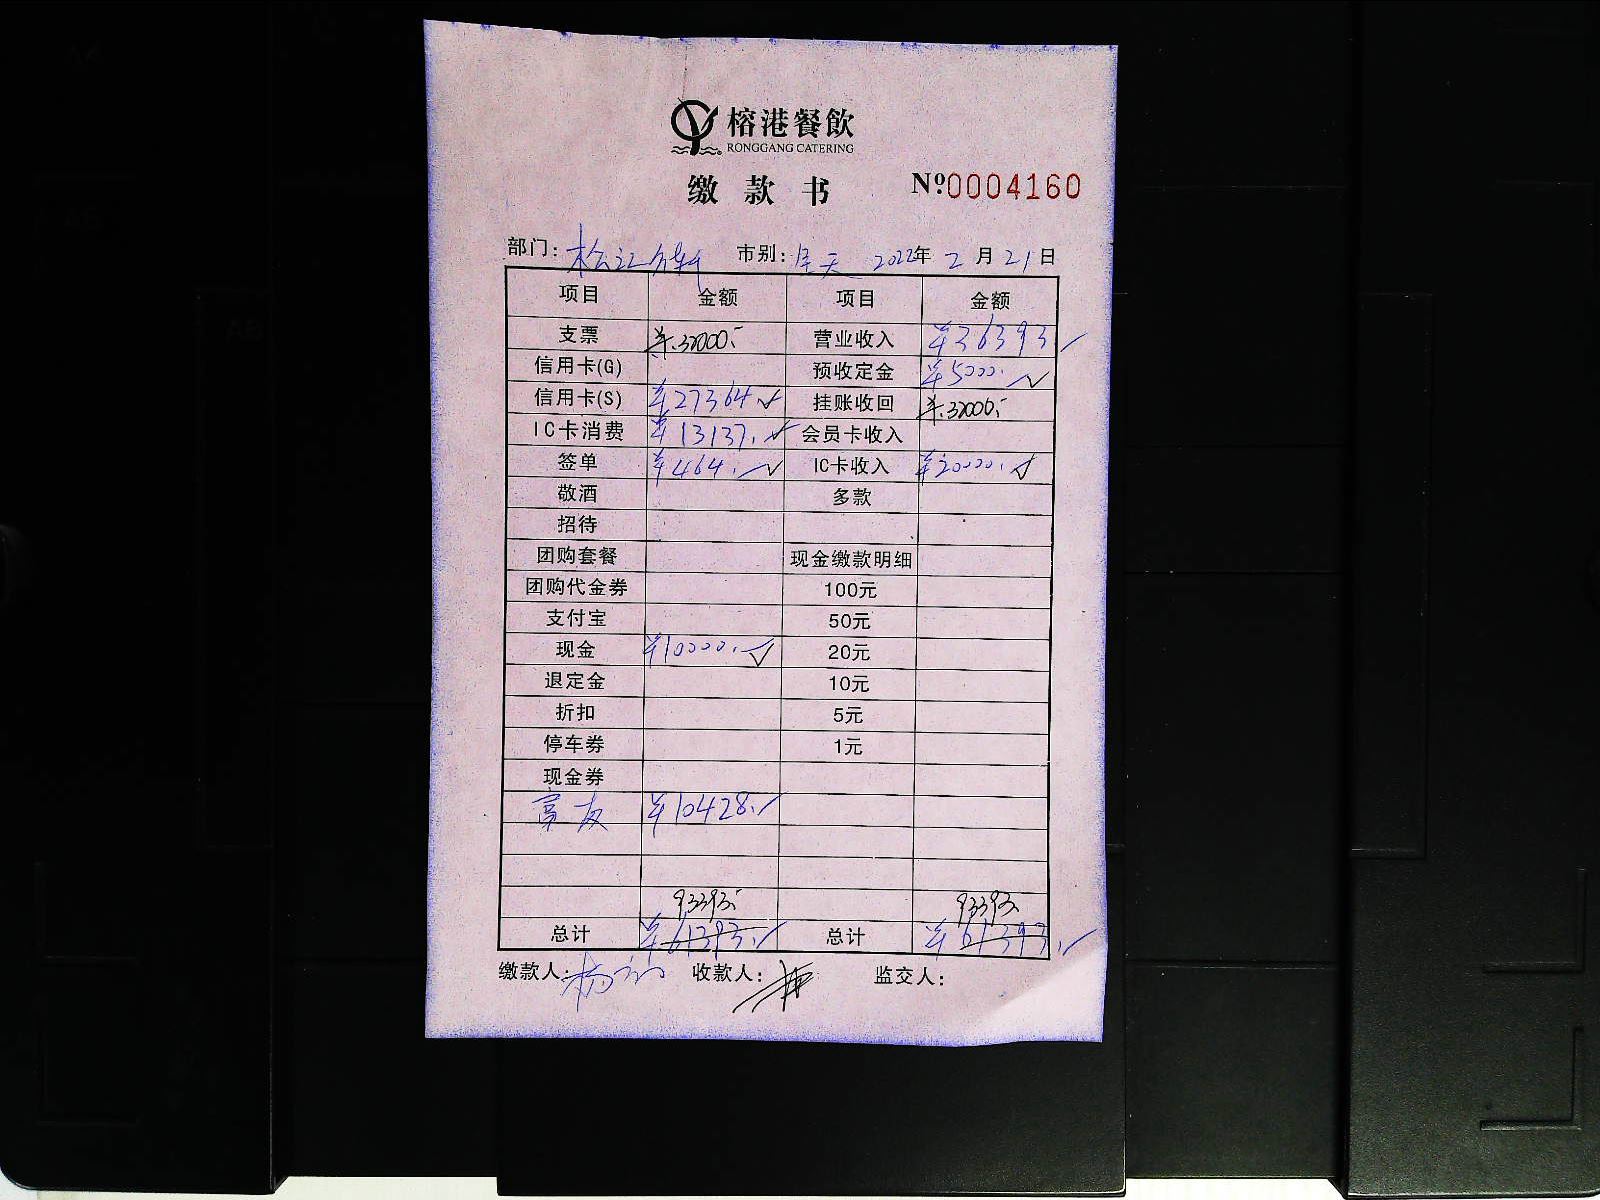 榕港餐飲
RONGGANG CATERING
缴款书 №0004160
部门: 松江 市别: 全天 2022年 2月21日
项目 金额 项目 金额
支票 ¥32000.- 营业收入 ¥36393
信用卡(G) 预收定金 ¥5000.
信用卡(S) ¥27364 挂账收回 ¥32000.-
IC卡消费 ¥13137. 会员卡收入
签单 ¥464. IC卡收入 ¥20000.
敬酒 多款
招待
团购套餐 现金缴款明细
团购代金券 100元
支付宝 50元
现金 ¥10000. 20元
退定金 10元
折扣 5元
停车券 1元
现金券
富友 ¥10428.
93393.- 93393.
总计 ¥61393. 总计 ¥61393.
缴款人: 杨 收款人: 监交人: